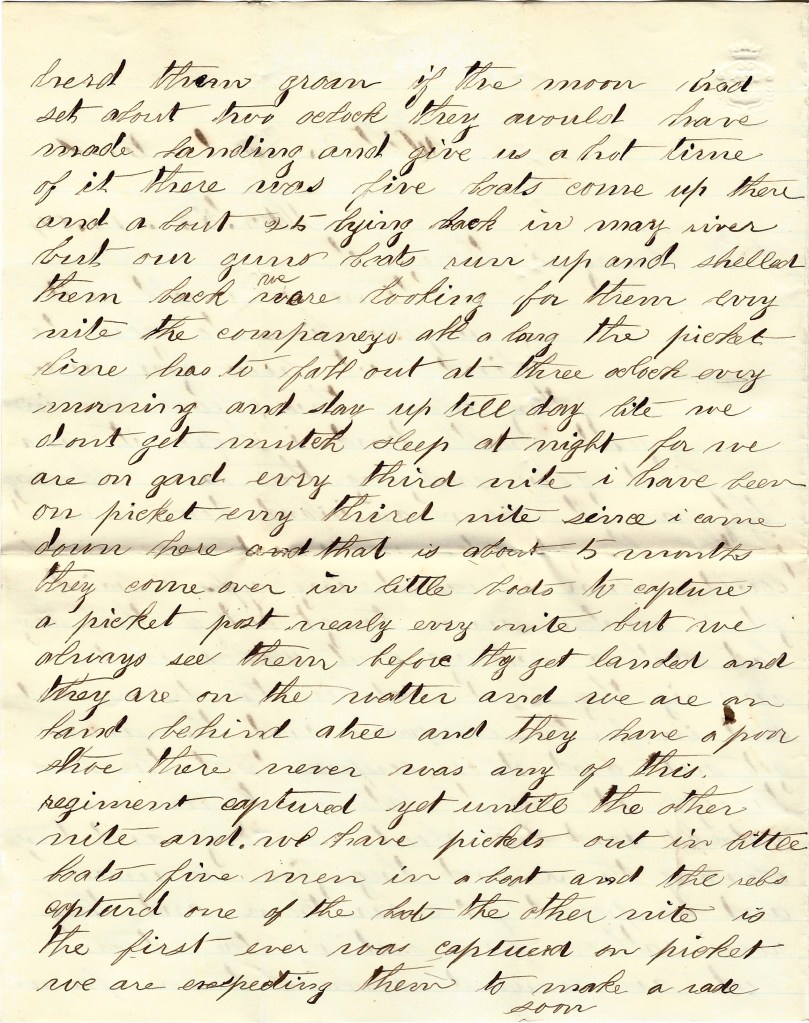 herd them groan if the moon had
set about two oclock they would have
made landing and give us a hot time
of it there was five boats come up there
and a bout 25 lying back in may river
but our guns boats run up and shelled
them back we are looking for them evry
nite the companeys all a long the picket
line has to fall out at three oclock evry
morning and stay up till day lite we
dont get mutch sleep at night for we
are on gard evry third nite i have been
on picket evry third nite since i came
down here and that is about 5 months
they come over in little boats to capture
a picket post nearly evry nite but we
always see them before thy get landed and
they are on the watter and we are on
land behind a tree and they have a poor
shoe there never was any of this
regiment captured yet untill the other
nite and. we have pickets out in little
boats five men in a boat and the rebs
capturd one of the bots the other nite is
the first ever was captured on picket
we are exspecting them to make a rade
soon